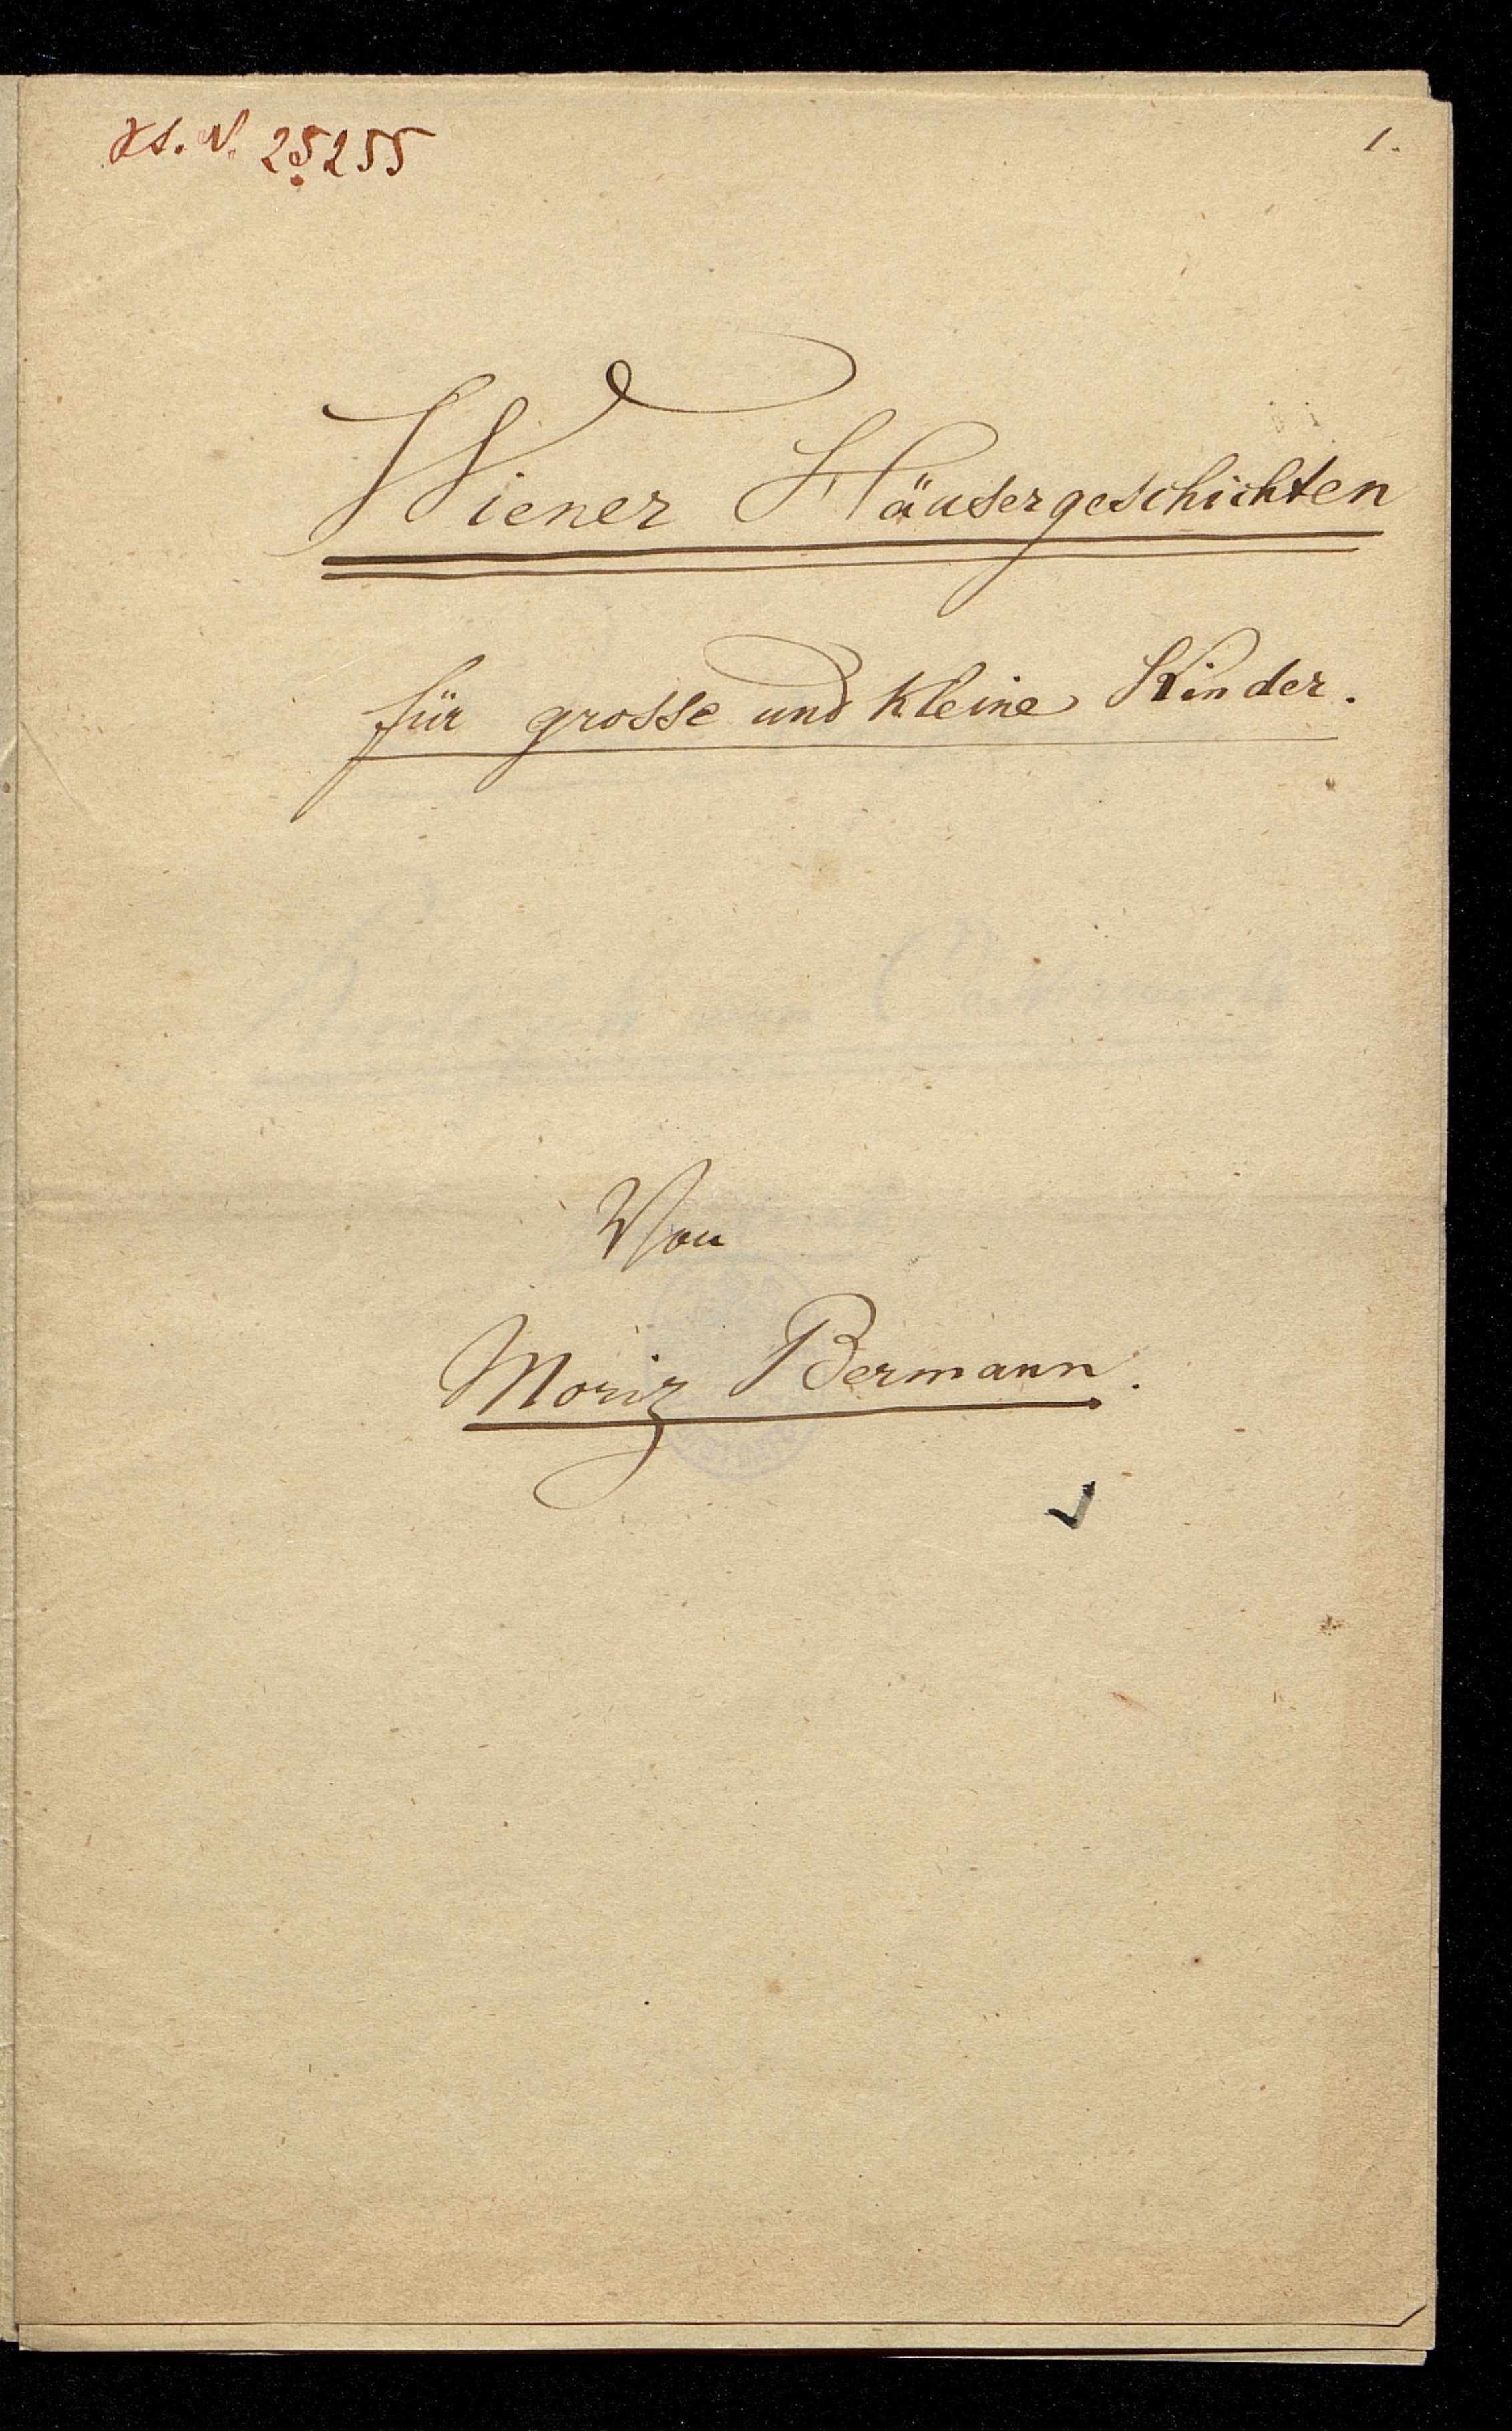 1.
Wiener Häusergeschichten
für grosse und kleine Kinder.
Von
Moriz Bermann.
25255